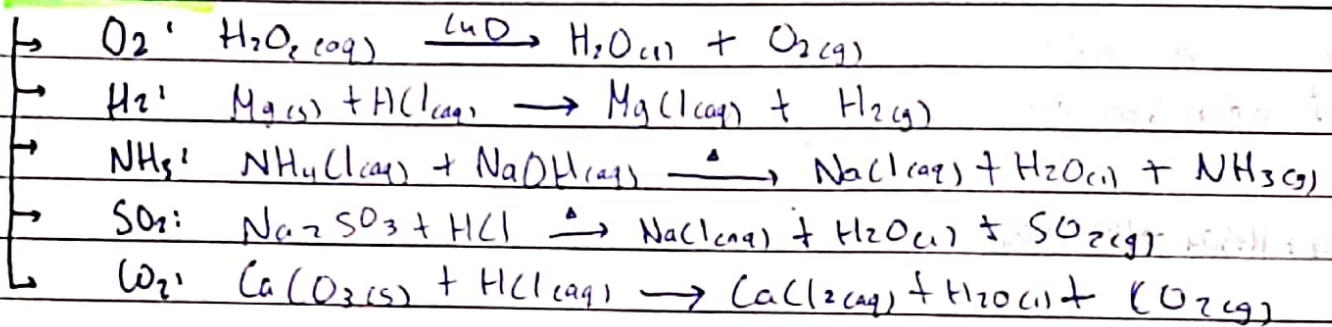 O2: H2O2(aq) CuO→ H2O(l) + O2(g)
H2: Mg(s) + HCl(aq) → MgCl(aq) + H2(g)
NH3: NH4Cl(aq) + NaOH(aq) Δ→ NaCl(aq) + H2O(l) + NH3(g)
SO2: Na2SO3 + HCl Δ→ NaCl(aq) + H2O(l) + SO2(g)
CO2: CaCO3(s) + HCl(aq) → CaCl2(aq) + H2O(l) + CO2(g)